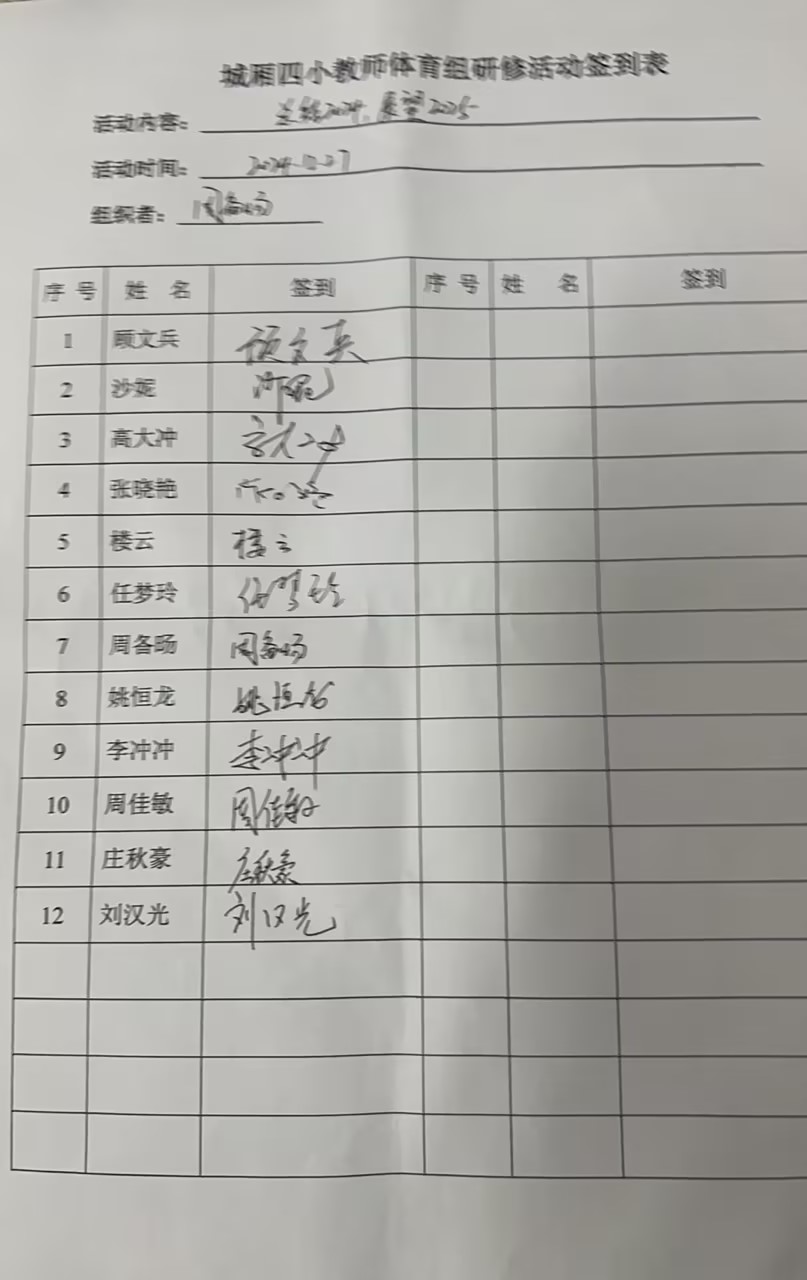 城厢四小教师体育组研修活动签到表
活动内容: 总结2024, 展望2025
活动时间: 2024.12.27
组织者: 周备旸
序号 姓名 签到 序号 姓名 签到
1 顾文兵 顾文兵
2 沙妮 沙妮
3 高大冲 高大冲
4 张晓艳 张晓艳
5 楼云 楼云
6 任梦玲 任梦玲
7 周备旸 周备旸
8 姚恒龙 姚恒龙
9 李冲冲 李冲冲
10 周佳敏 周佳敏
11 庄秋豪 庄秋豪
12 刘汉光 刘汉光